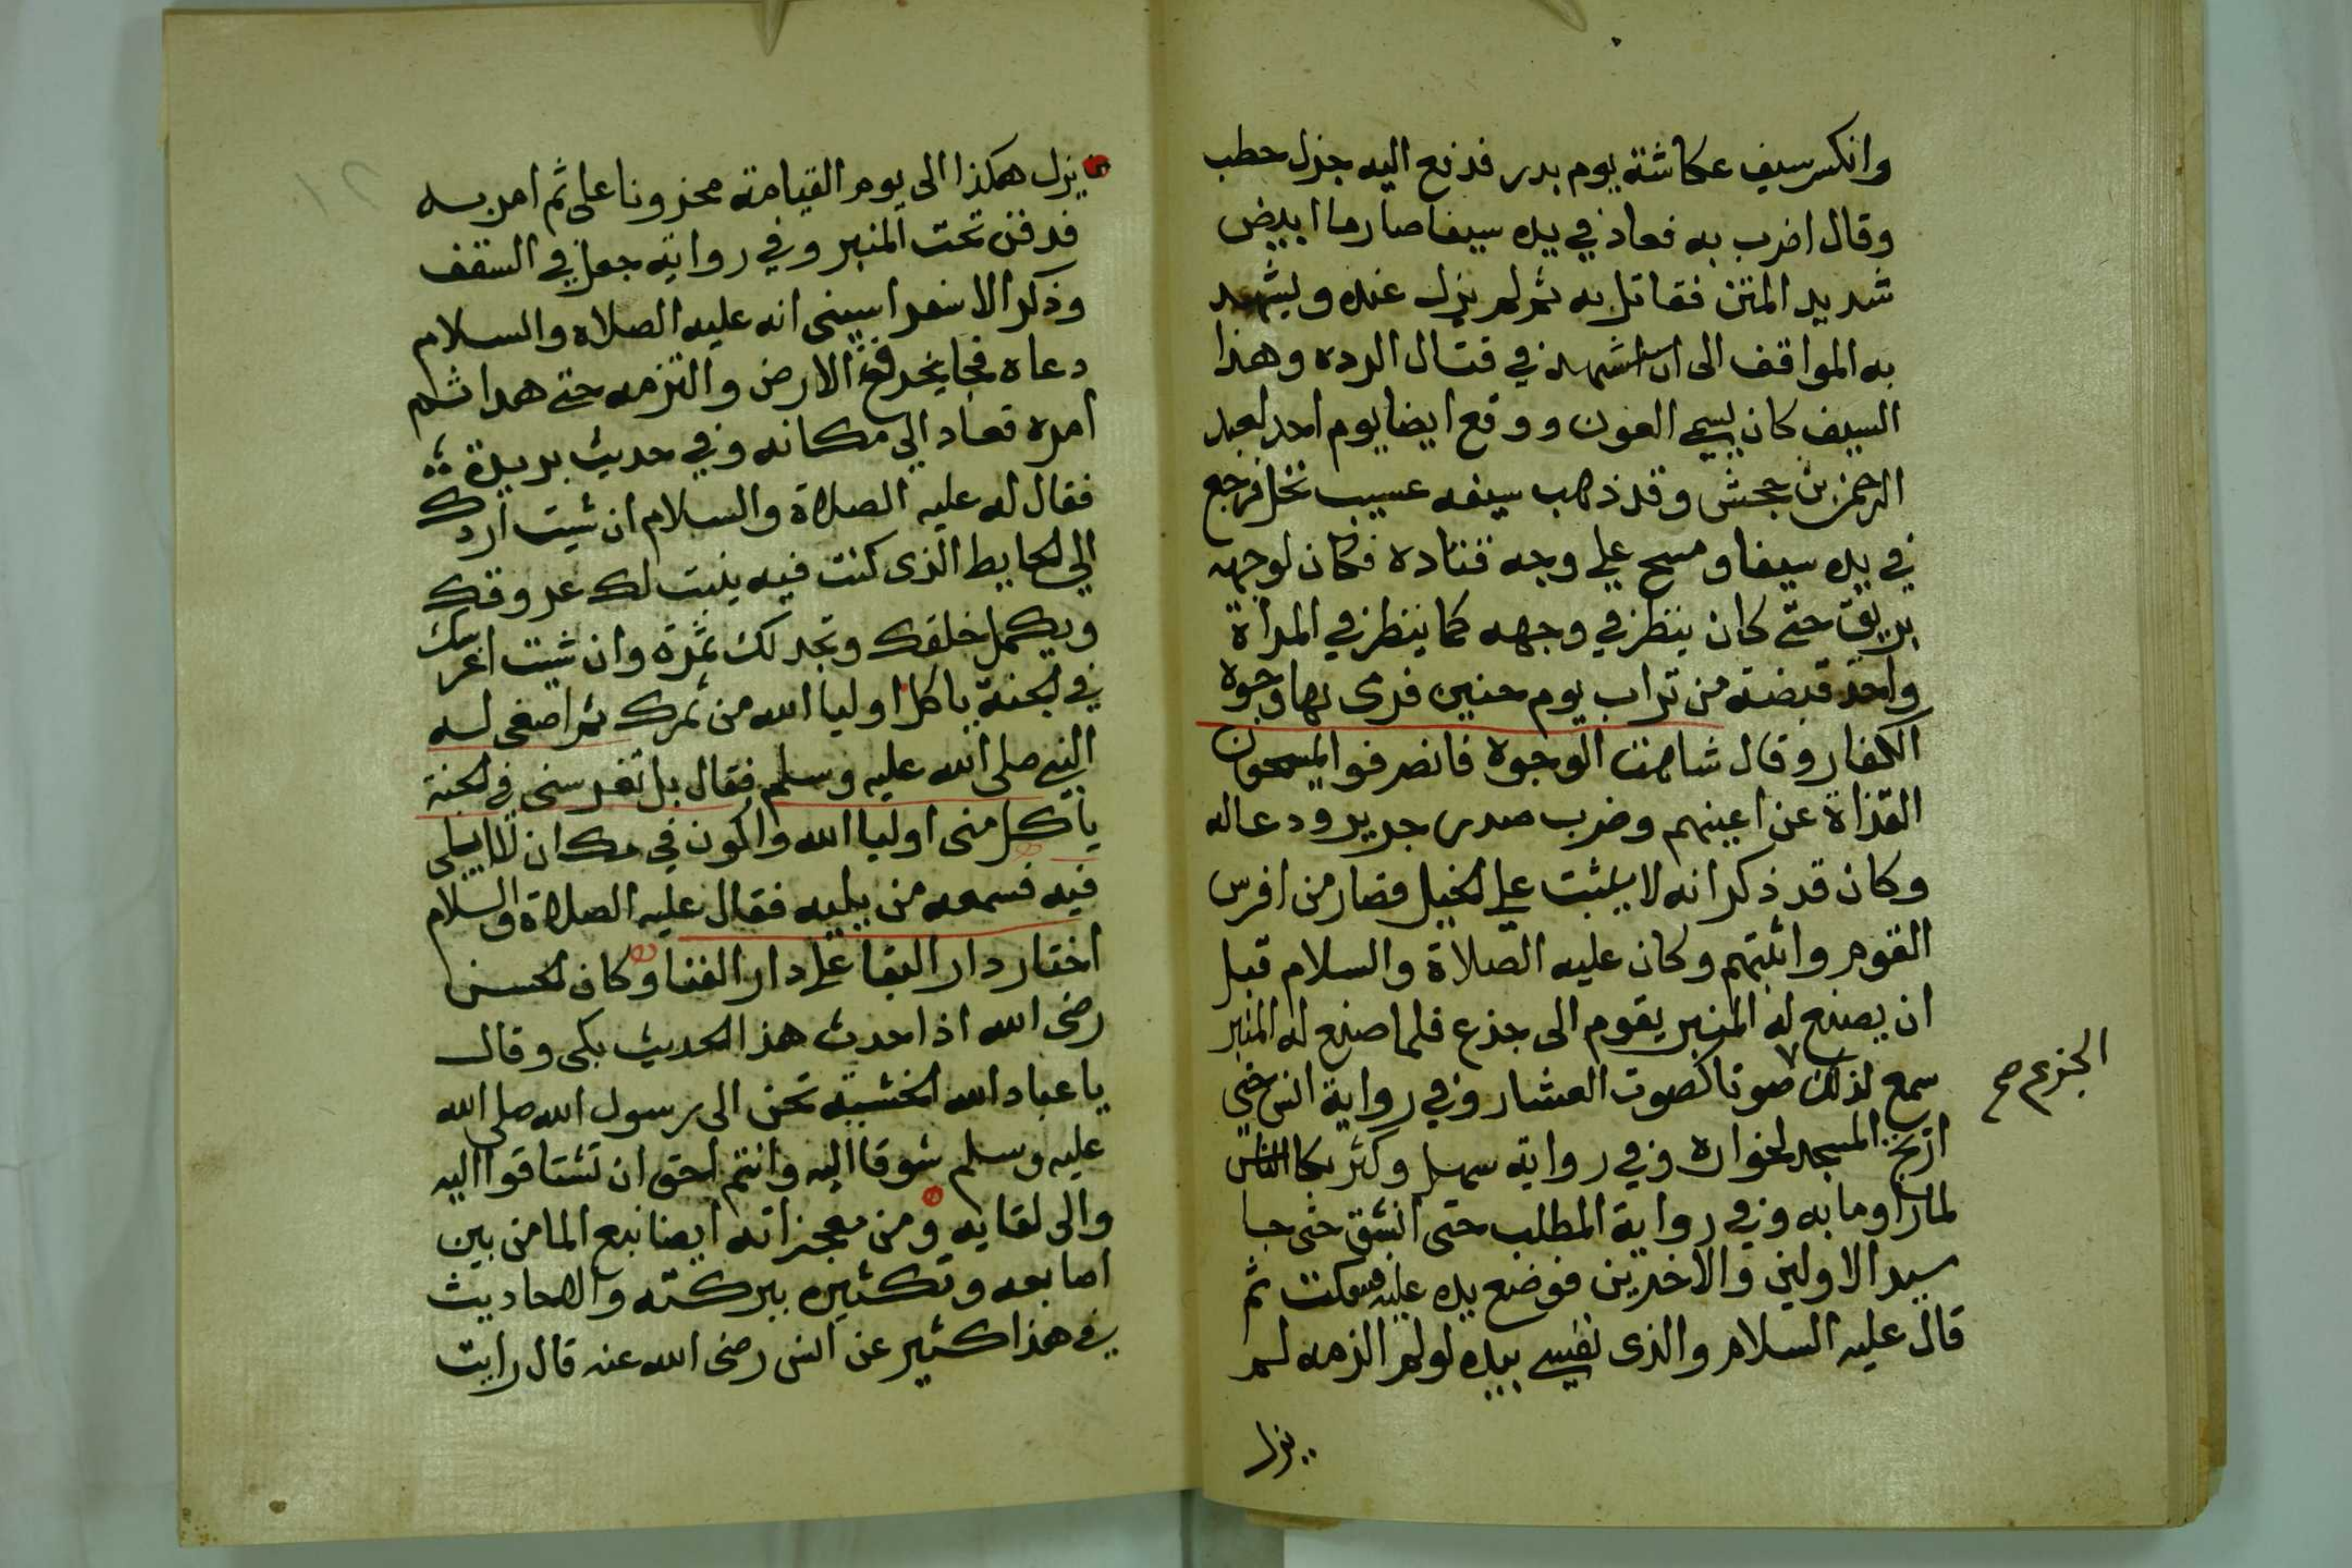 وانكسر سيف عكاشة يوم بدر فدفع اليه جزل حطب
وقال اضرب به فعاد في يده سيفا صارما ابيض
شديد المتن فقاتل به ثم لم يزل عنده ويشهد
به المواقف الى ان استشهد في قتال الرده وهذا
السيف كان يسمى العون ووقع ايضا يوم احد لعبد
الرحمن بن جحش وقد ذهب سيفه عسيب نخل فرجع
في يده سيفا ومسح على وجه قتادة فكان لوجهه
بريق حتى كان ينظر في وجهه كما ينظر في المراة
واخذ قبضة من تراب يوم حنين فرمى بها وجوه
الكفار وقال شاهت الوجوه فانصرفوا يمسحون
القذاة عن اعينهم وضرب صدر جرير ودعا له
وكان قد ذكر انه لا يثبت على الخيل فصار من افرس
القوم واثبتهم وكان عليه الصلاة والسلام قبل
ان يصنع له المنبر يقوم الى جذع فلما صنع له المنبر
سمع لذلك صوتا كصوت العشار وفي رواية انس حتى
الجزع صح
ارتج المسجد لخواره وفي رواية سهل وكثر بكا الناس
لما راوا ما به وفي رواية المطلب حتى انشق حتى جا
سيد الاولين والاخرين فوضع يده عليه فسكنت ثم
قال عليه السلام والذى نفسي بيده لو لم الزمه لم
يزل
يزل هكذا الى يوم القيامة محزونا على ثم امر به
فدفن تحت المنبر وفي رواية جعل في السقف
وذكر الاسفرايينى انه عليه الصلاه والسلام
دعاه فجا يخرق الارض والتزمه حتى هدا ثم
امره فعاد الى مكانه وفي حديث بريدة
فقال له عليه الصلاة والسلام ان شيت اردك
الى الحايط الذى كنت فيه ينبت لك عروقك
ويكمل خلقك وتجد لك ثمرة وان شيت اغرسك
في الجنة ياكل اوليا الله من ثمرك ثم اصغى له
النبي صلى الله عليه وسلم فقال بل تغرسنى في الجنة
ياكل منى اوليا الله واكون في مكان لا ابلى
فيه فسمعه من يليه فقال عليه الصلاة والسلام
اختار دار البقا على دار الفنا وكان الحسن
رضى الله اذا حدث هذا الحديث بكى وقال
يا عباد الله الخشبة تحن الى رسول الله صلى الله
عليه وسلم شوقا اليه وانتم احق ان تشتاقوا اليه
والى لقايه ومن معجزاته ايضا نبع الما من بين
اصابعه وتكثيره ببركته والاحاديث
في هذا كثير عن انس رضى الله عنه قال رايت